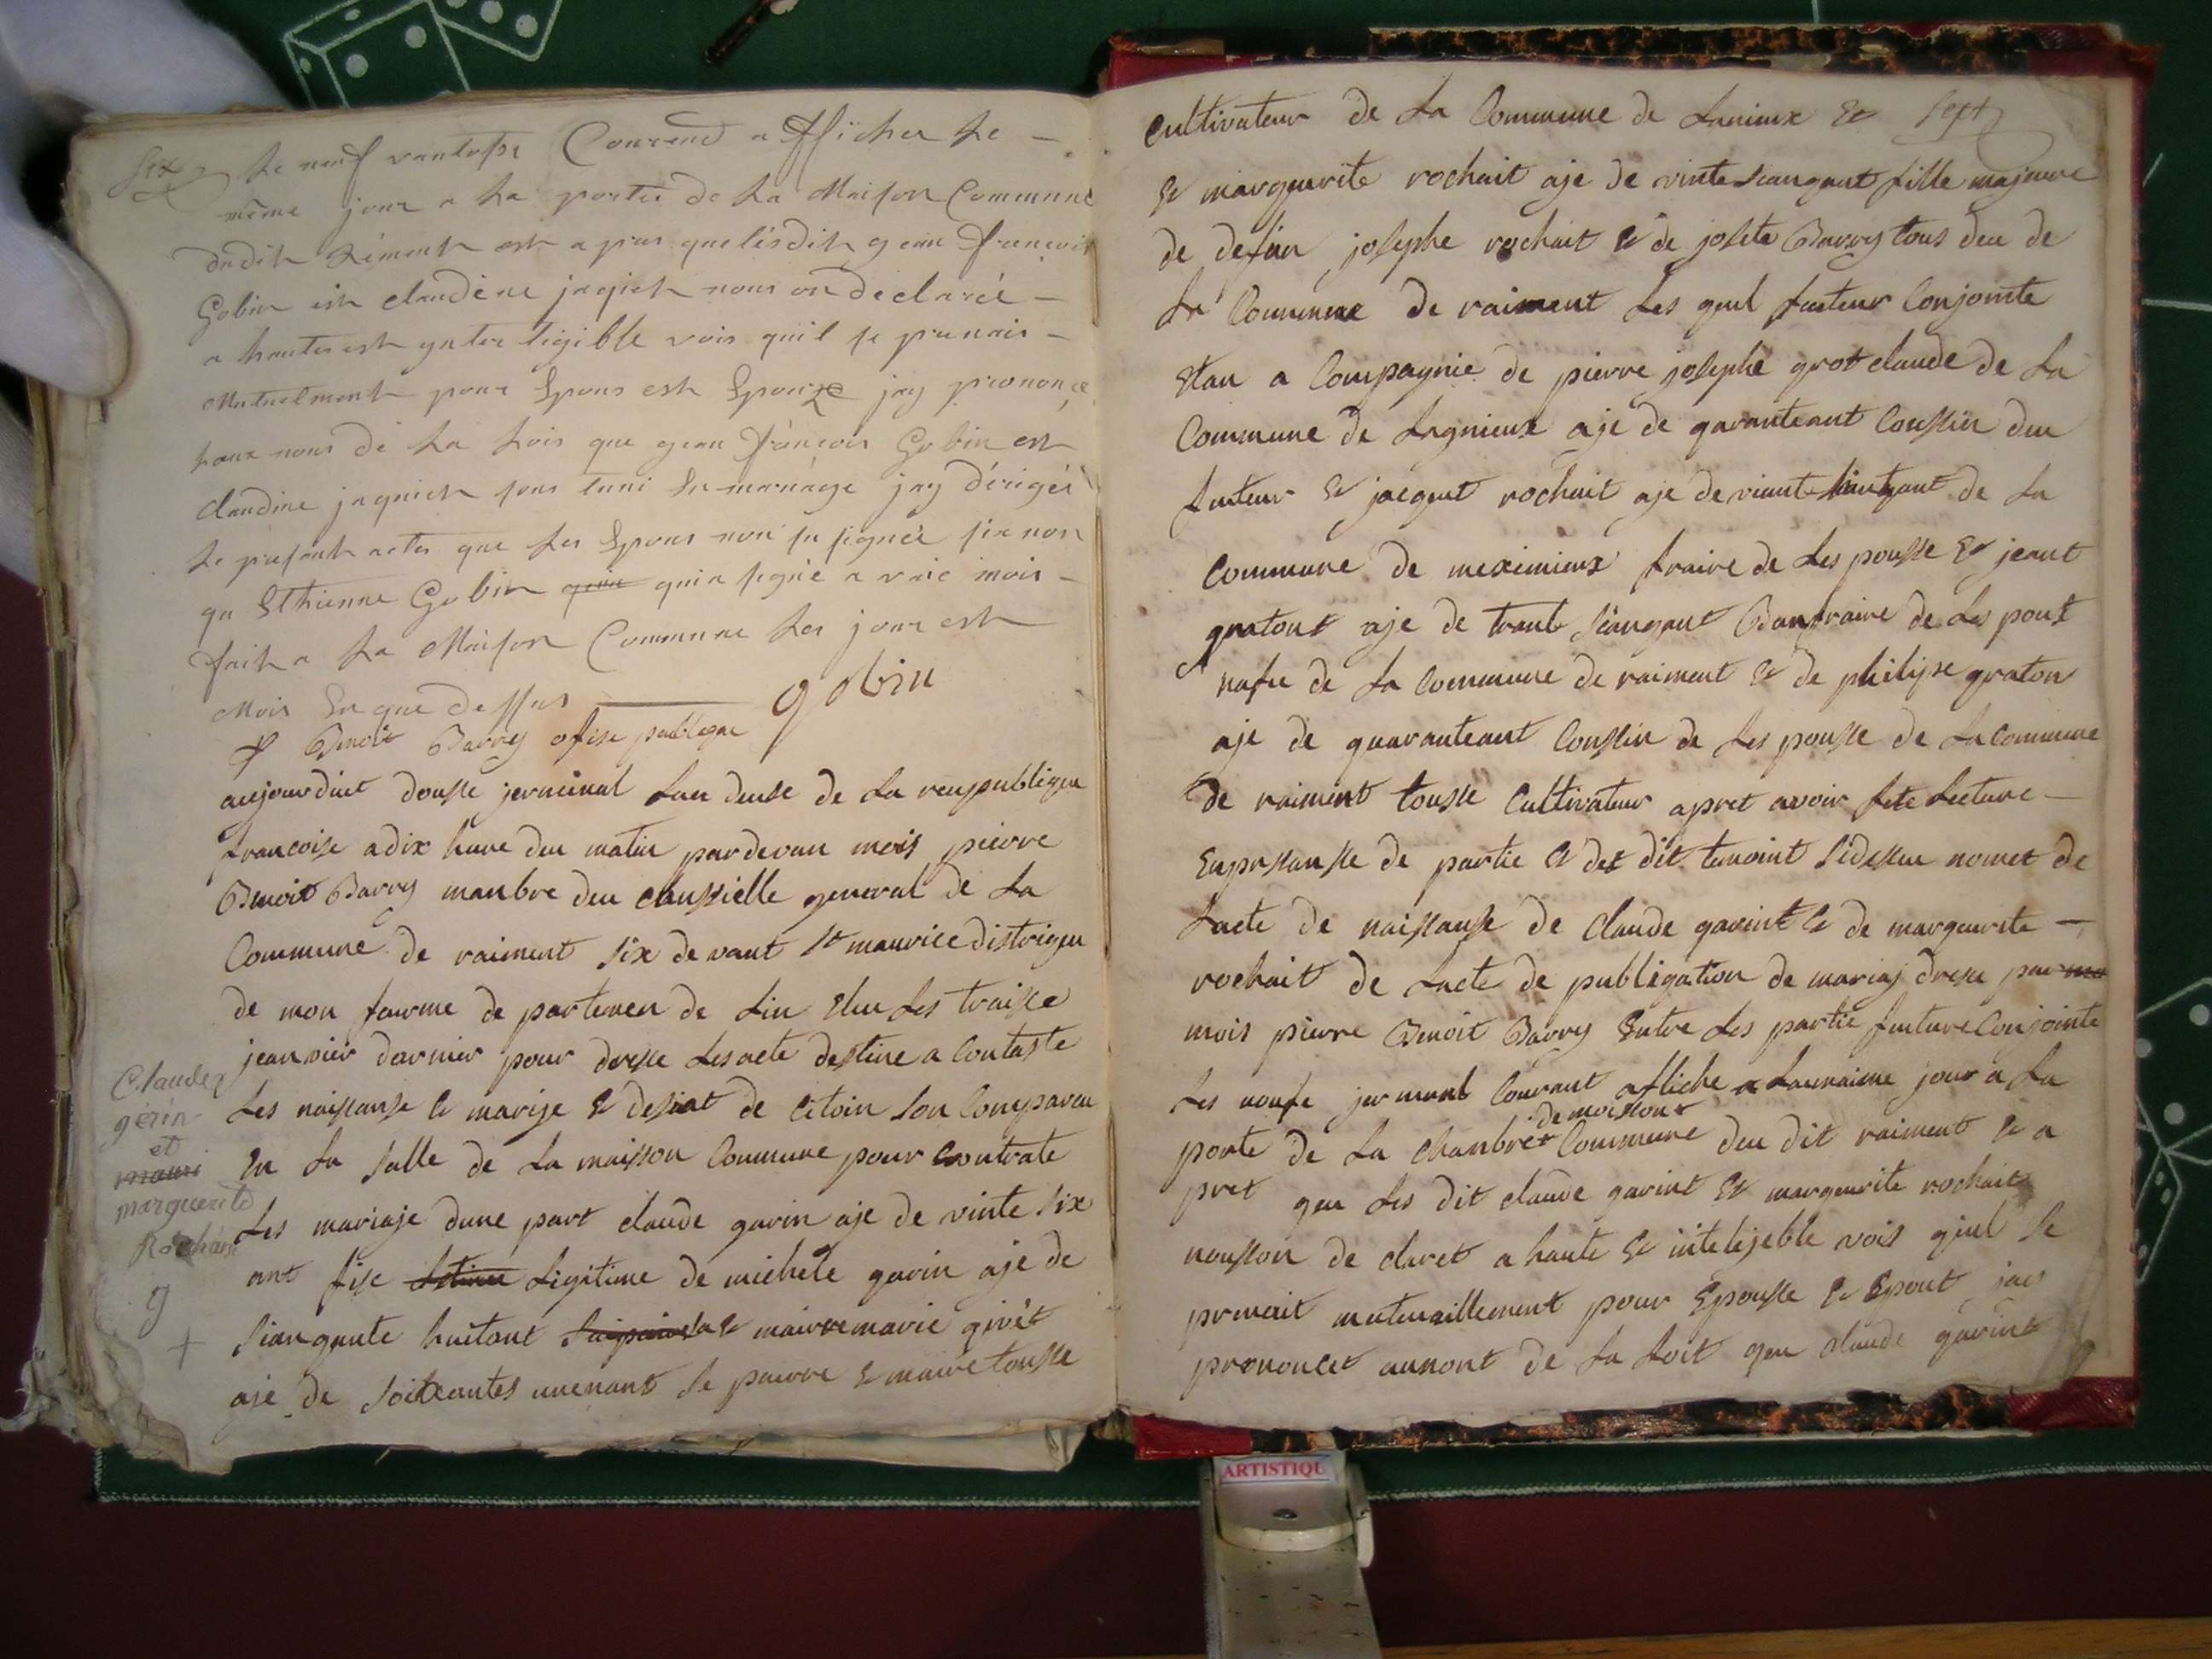 Six
Le neuf vantosse Courend a Afficher Le –
même jour a La porter de La Maison Commune
dudit Rément est a pras que lesdit gean françois
Gobin est claudène jaqiet nous on declarée –
a hautes est ynter ligible vois quil se prenais –
Mutuelment pour Epous est Epouze jay prononçe
haux nons de La Lois que gean fránçois Gobin est
claudine jaquiet sons tuni En mariage jay dérigér
Le presant actes que Les Epous non su signée sie non
qu Ethienne Gobin qui a signé a vaic mois –
fait a La Maison Commune Les jour est
Mois En que dessus gobin
P Benoit Barry ofise publeque
aujourduit dousse jerminal Lan deuse de La reupublique
francoise adix hure deu matin pardevan mois pierre
Benoit Barry manbre deu caussielle general de La
Commune de raiment six devant St maurice distrigeu
de mon feurme de partemen de Lin Eleu Les traisse
jeanvier darnier pour dresse Les acte destine a Contaste
Les naissanse Ce marije & desiat de citoin son Compareu
En La salle de La maisson Commune pour Contrate
Les mariaje dune part claude garin aje de vinte six
ant fise Ligitime de michele garin aje de
siangante huitant mairre marie givét
aje de soixantes unenant Se pairre & maire tousse
Claude
gérin
et
marguerite
Rochäix
g
+
Cultivateur de La Commune de Lanieux Et
Sept
Et margeurite rochait aje de vinte siangant fille majeure
de defun josephe rochait & de josete Barry tous deu de
La Commune de raiment Les geul futeur Conjointe
Etan a Compagnie de pierre josephe grot claude de La
Commune de Lagnieux aje de garanteant Coussin deu
futeur & jacgeut rochait aje de viante huitgant de La
Commune de meximieux fraire de Les pousse & jeant
graton aje de trante siangant Baufraire de Les pout
nafu de La Commune de raiment & de philipe graton
aje de guaranteant Coussin de Les pousse de La Commune
de raiment tousse Cultivateur apret avoir fete Lecture –
Enpressansse de partie & det dit temoint sidesseu nomet de
Lacte de naissanse de Claude garint & de margeurite –
rochait de Lacte de publigation de mariaj dresse par
mois pierre Benoit Barry Entre Les partie fuiture Conjointe
Les noufe jerminal Courant afliche a Laumaime jour a La
de moisson
porte de La chanbre Commune deu dit raiment & a
pret geu Les dit claude garint & margeurite rochait
nousson de claret a haute & intelijeble vois quil Se
prenait muteuaillement pour Epousse & Epout jaes
prononcet aunont de La Loit geu claude garint